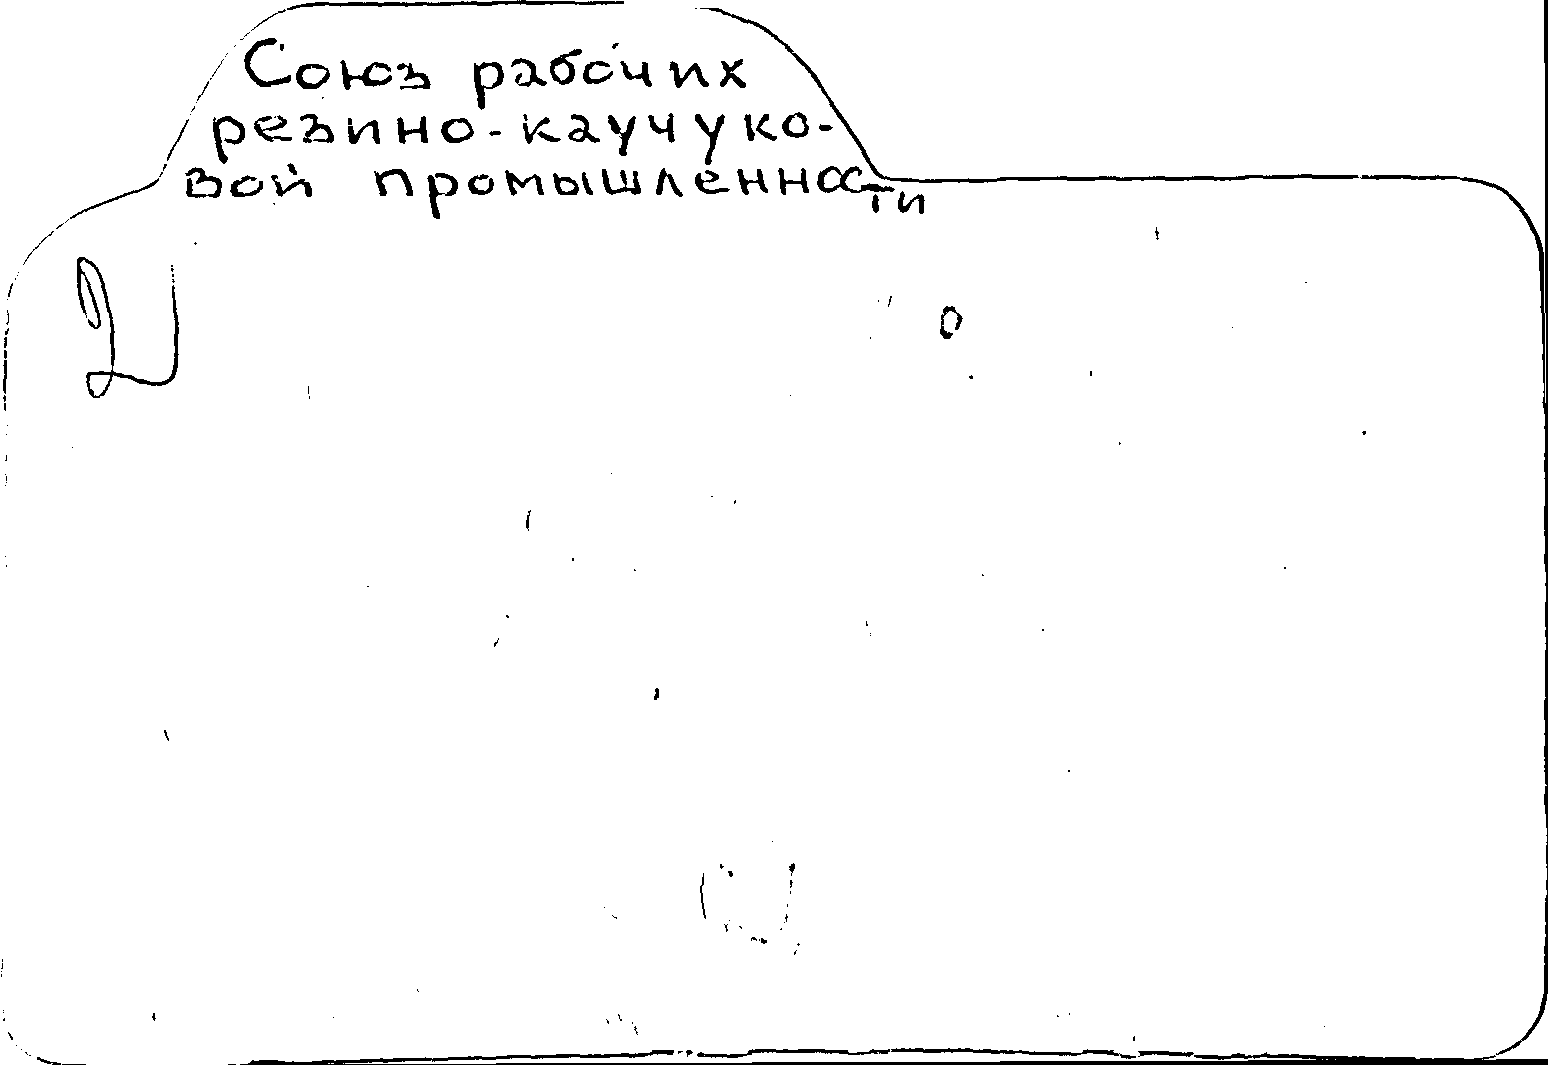 Союз рабочих
резино-каучуко-
вой промышленности